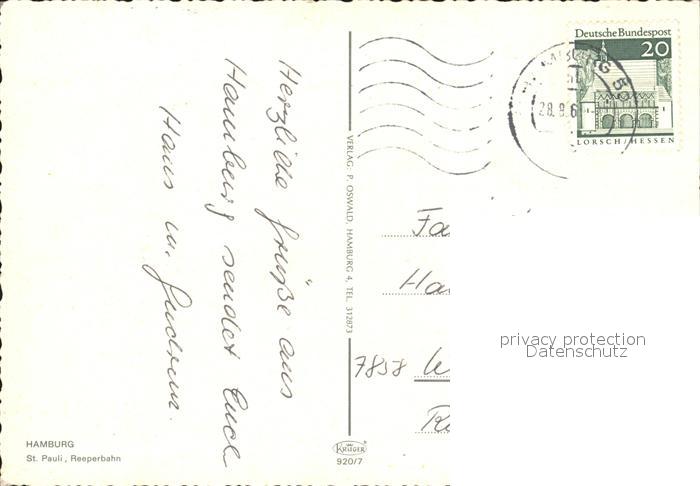 Herzliche Grüße aus
Hamburg sendet Euch
Hans u. Gudrun.
HAMBURG
St. Pauli, Reeperbahn
VERLAG: P. OSWALD, HAMBURG 4, TEL. 312873
KRÜGER
920/7
Deutsche Bundespost
20
LORSCH/HESSEN
28.8.6
Fa
Ha
7858
privacy protection
Datenschutz